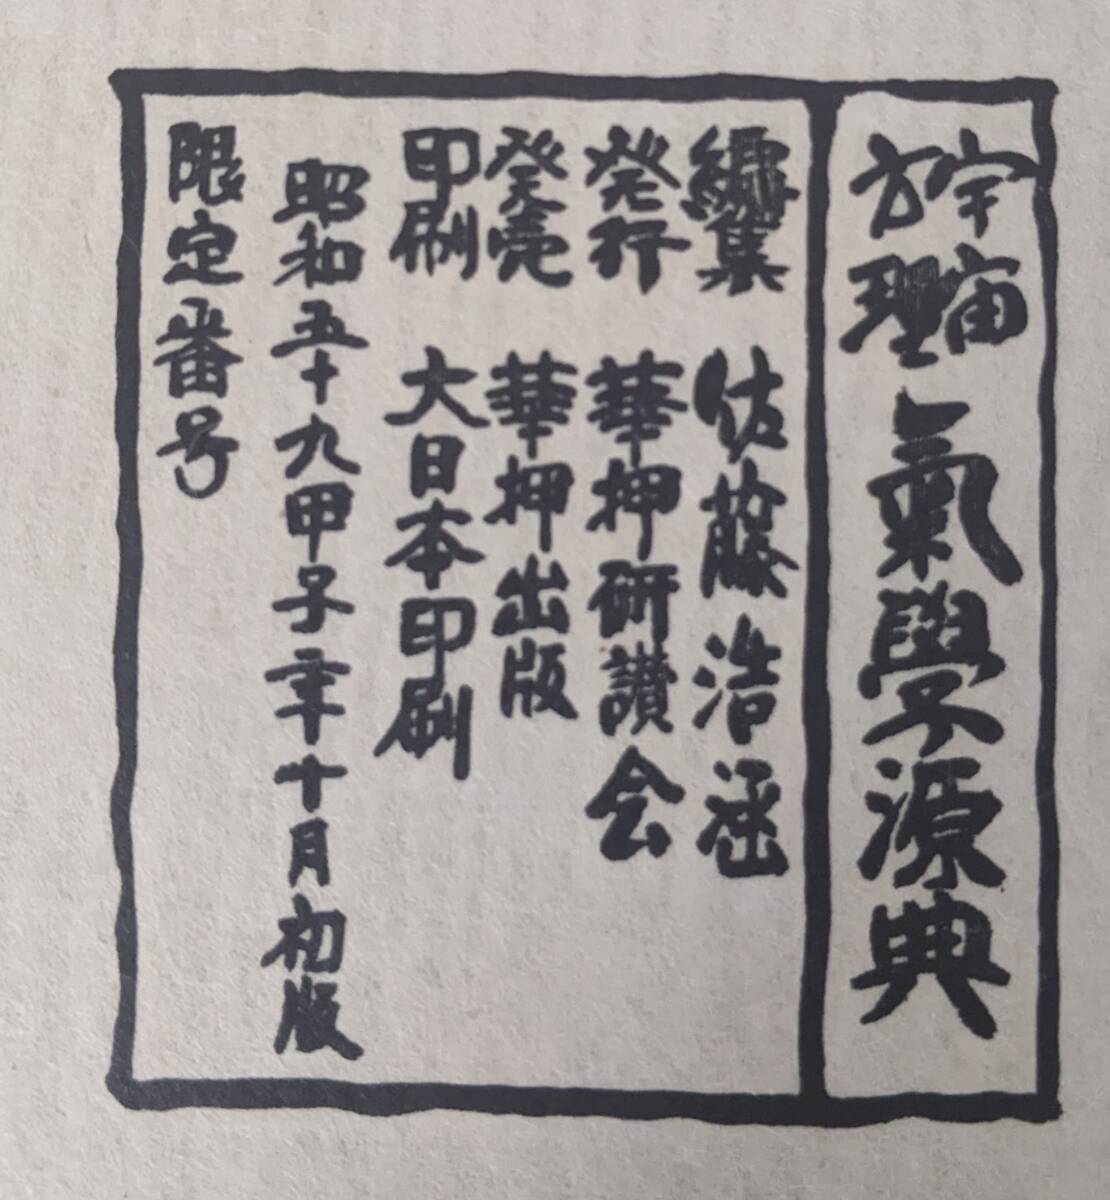 宇宙方理氣學源典
編集 佐藤浩丞
発行 華押研讃会
発売 華押出版
印刷 大日本印刷
昭和五十九甲子年十月初版
限定番号